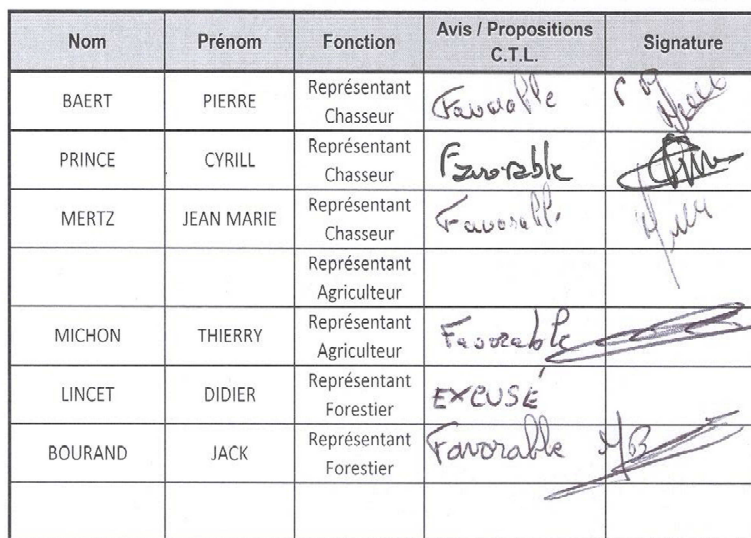 Nom Prénom Fonction Avis / Propositions C.T.L. Signature
BAERT PIERRE Représentant Chasseur Favorable
PRINCE CYRILL Représentant Chasseur Favorable
MERTZ JEAN MARIE Représentant Chasseur Favorable
Représentant Agriculteur
MICHON THIERRY Représentant Agriculteur Favorable
LINCET DIDIER Représentant Forestier EXCUSÉ
BOURAND JACK Représentant Forestier Favorable